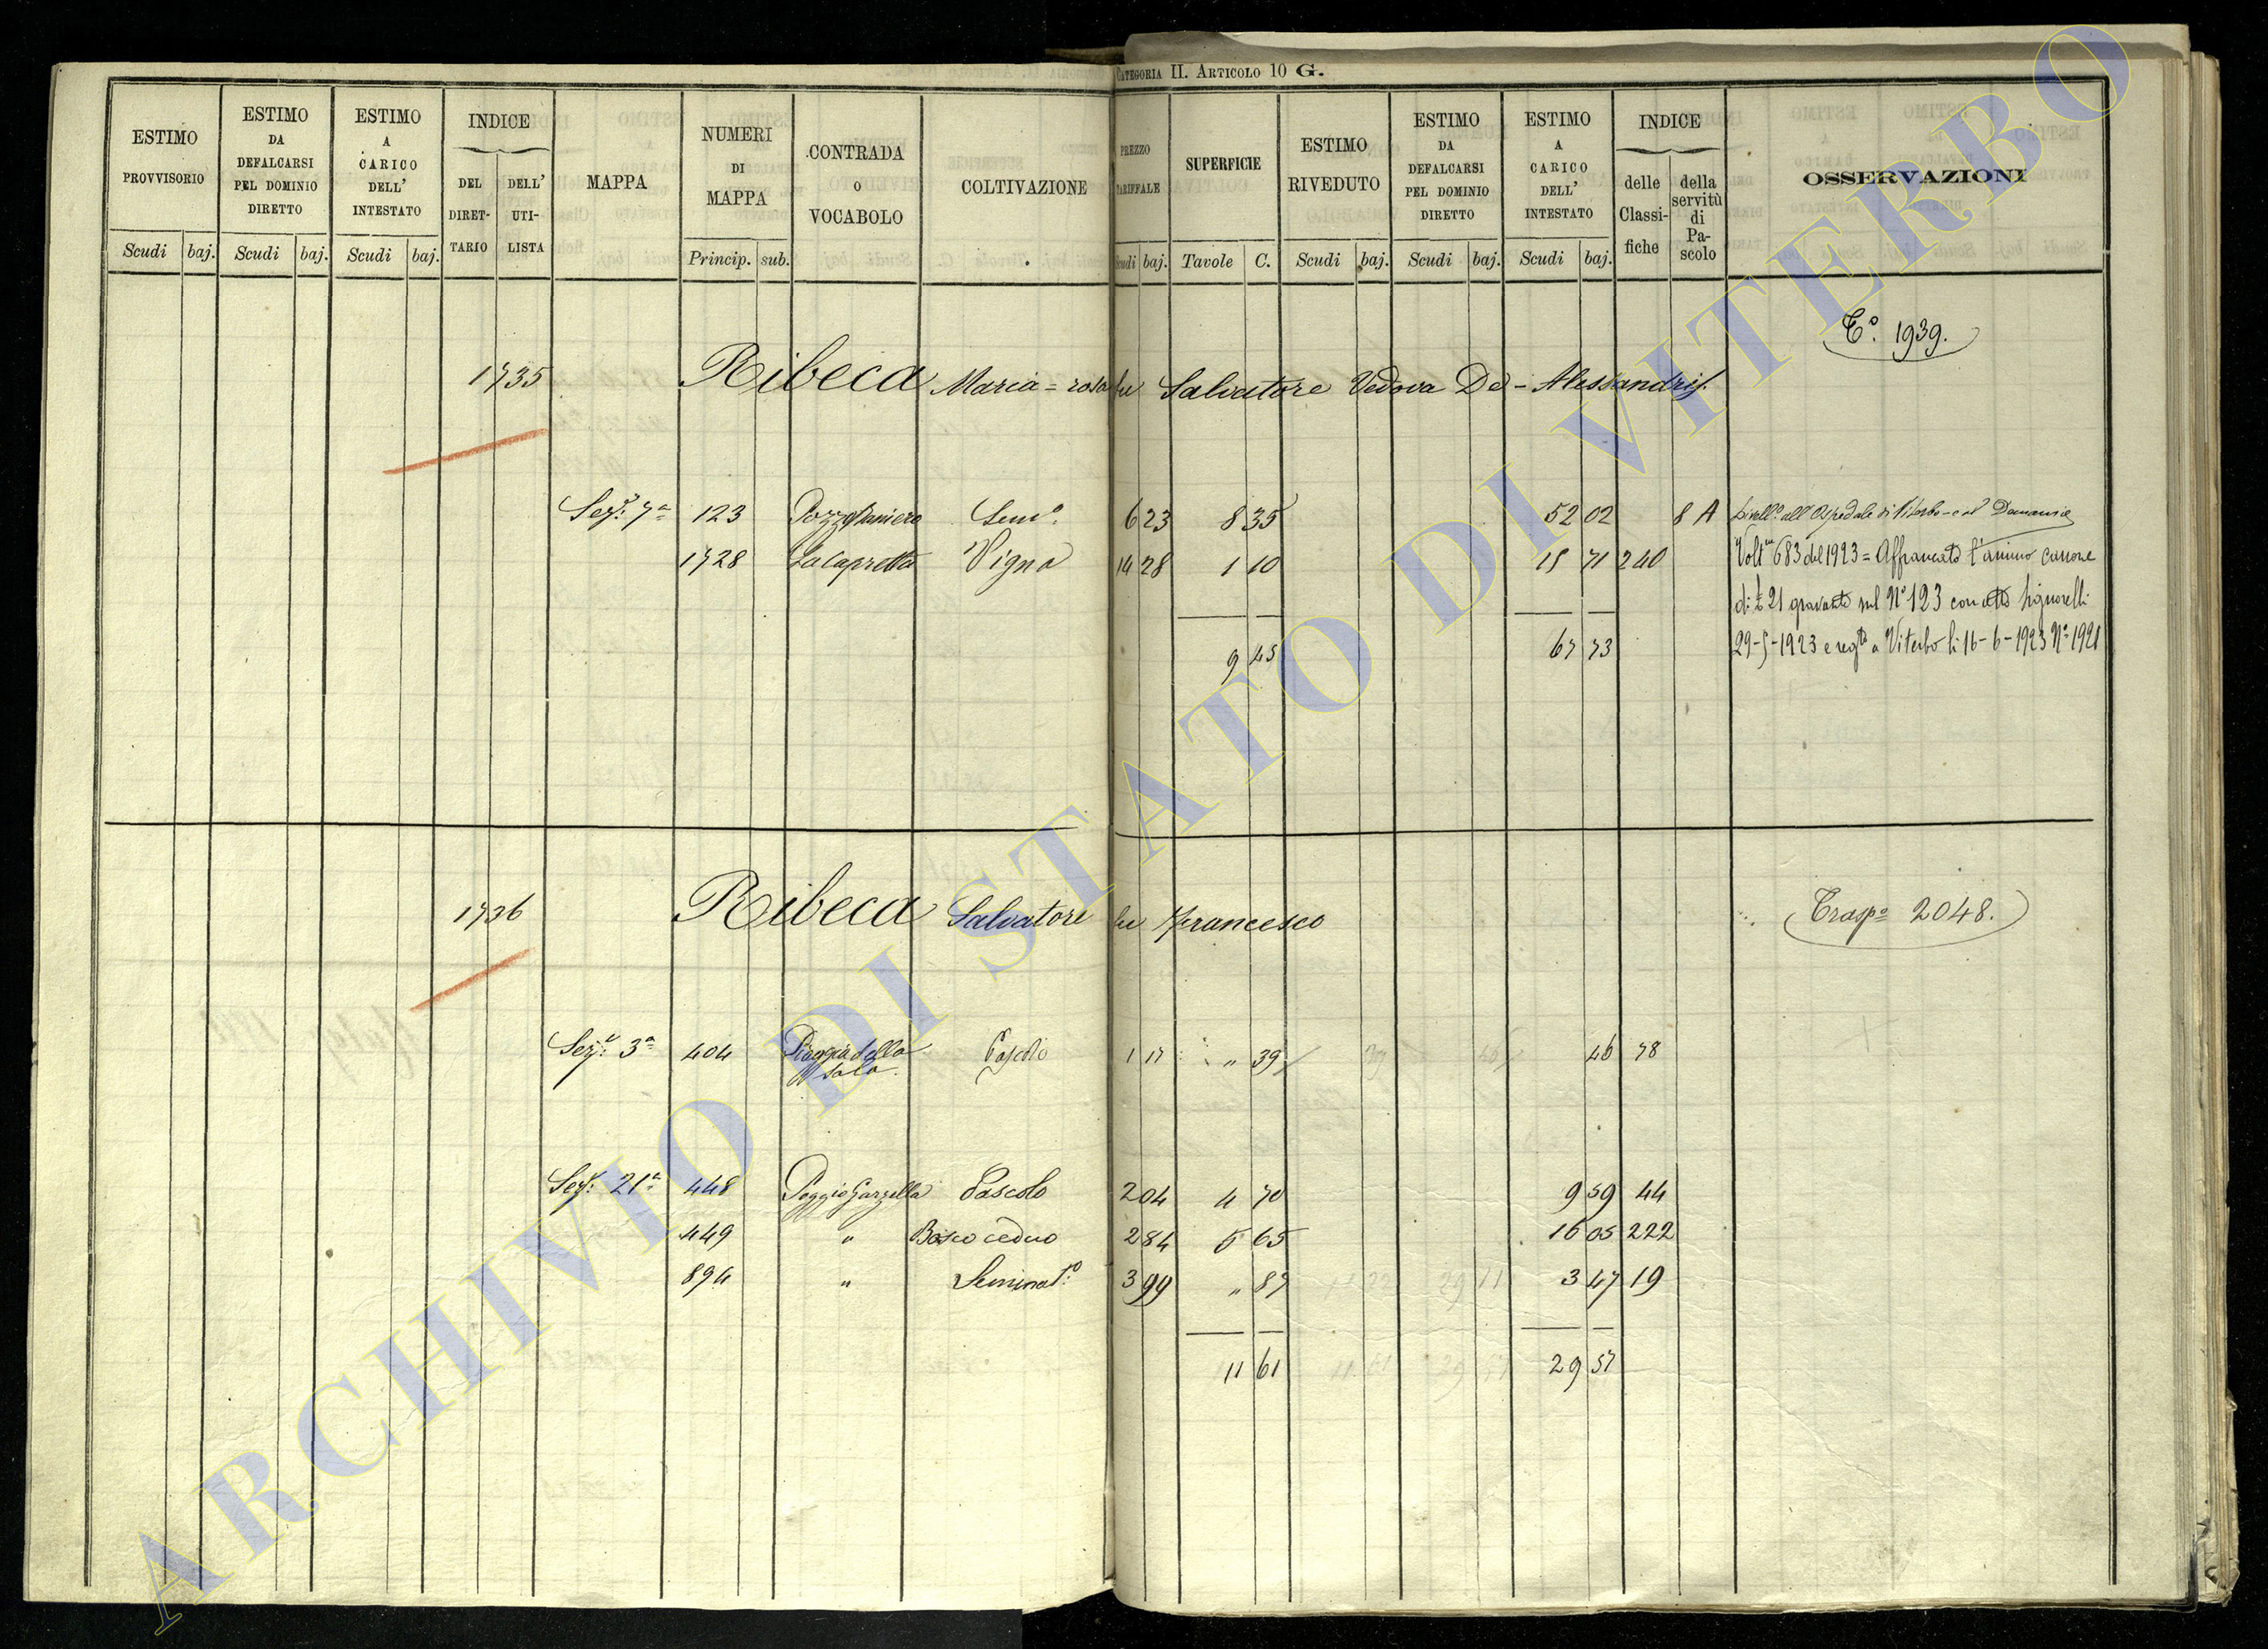 CATEGORIA II. ARTICOLO 10 G.
ESTIMO PROVVISORIO
Scudi baj.
ESTIMO DA DEFALCARSI PEL DOMINIO DIRETTO
Scudi baj.
ESTIMO A CARICO DELL' INTESTATO
Scudi baj.
INDICE
DEL DIRET-TARIO
DELL' UTI-LISTA
MAPPA
NUMERI DI MAPPA
Princip. sub.
CONTRADA O VOCABOLO
COLTIVAZIONE
PREZZO TARIFFALE
Scudi baj.
SUPERFICIE
Tavole C.
ESTIMO RIVEDUTO
Scudi baj.
ESTIMO DA DEFALCARSI PEL DOMINIO DIRETTO
Scudi baj.
ESTIMO A CARICO DELL' INTESTATO
Scudi baj.
INDICE
delle Classi-fiche
della servitù di Pa-scolo
OSSERVAZIONI
Tº. 1939.
1735 Ribeca Maria=rosa fu Salvatore Vedova De-Alessandris.
Sezᵉ: 7ª 123 Semº. 6 23 8 35 52 02 8 A Livellº. all'Ospedale di Viterbo e al Demanio
1728 La capretta Vigna 14 28 1 10 15 71 240 Voltra 683 del 1923 = Affrancato l'annuo canone
di £ 21 gravante sul Nº 123 con atto Signorelli
9 45 67 73 29-5-1923 e regto a Viterbo li 16-6-1923 Nº 1921
1736 Ribeca Salvatore fu Francesco Traspº 2048.
Sezᵉ: 3ª 404 Piaggia della Sala. Pascolo 1 17 " 39 46 78
Sezᵉ: 21ª 448 Poggio Garzella Pascolo 2 04 4 70 9 59 44
449 " Bosco ceduo 2 84 5 65 16 05 222
894 " Seminatº. 3 99 " 87 3 47 19
11 61 29 57
ARCHIVIO DI STATO DI VITERBO